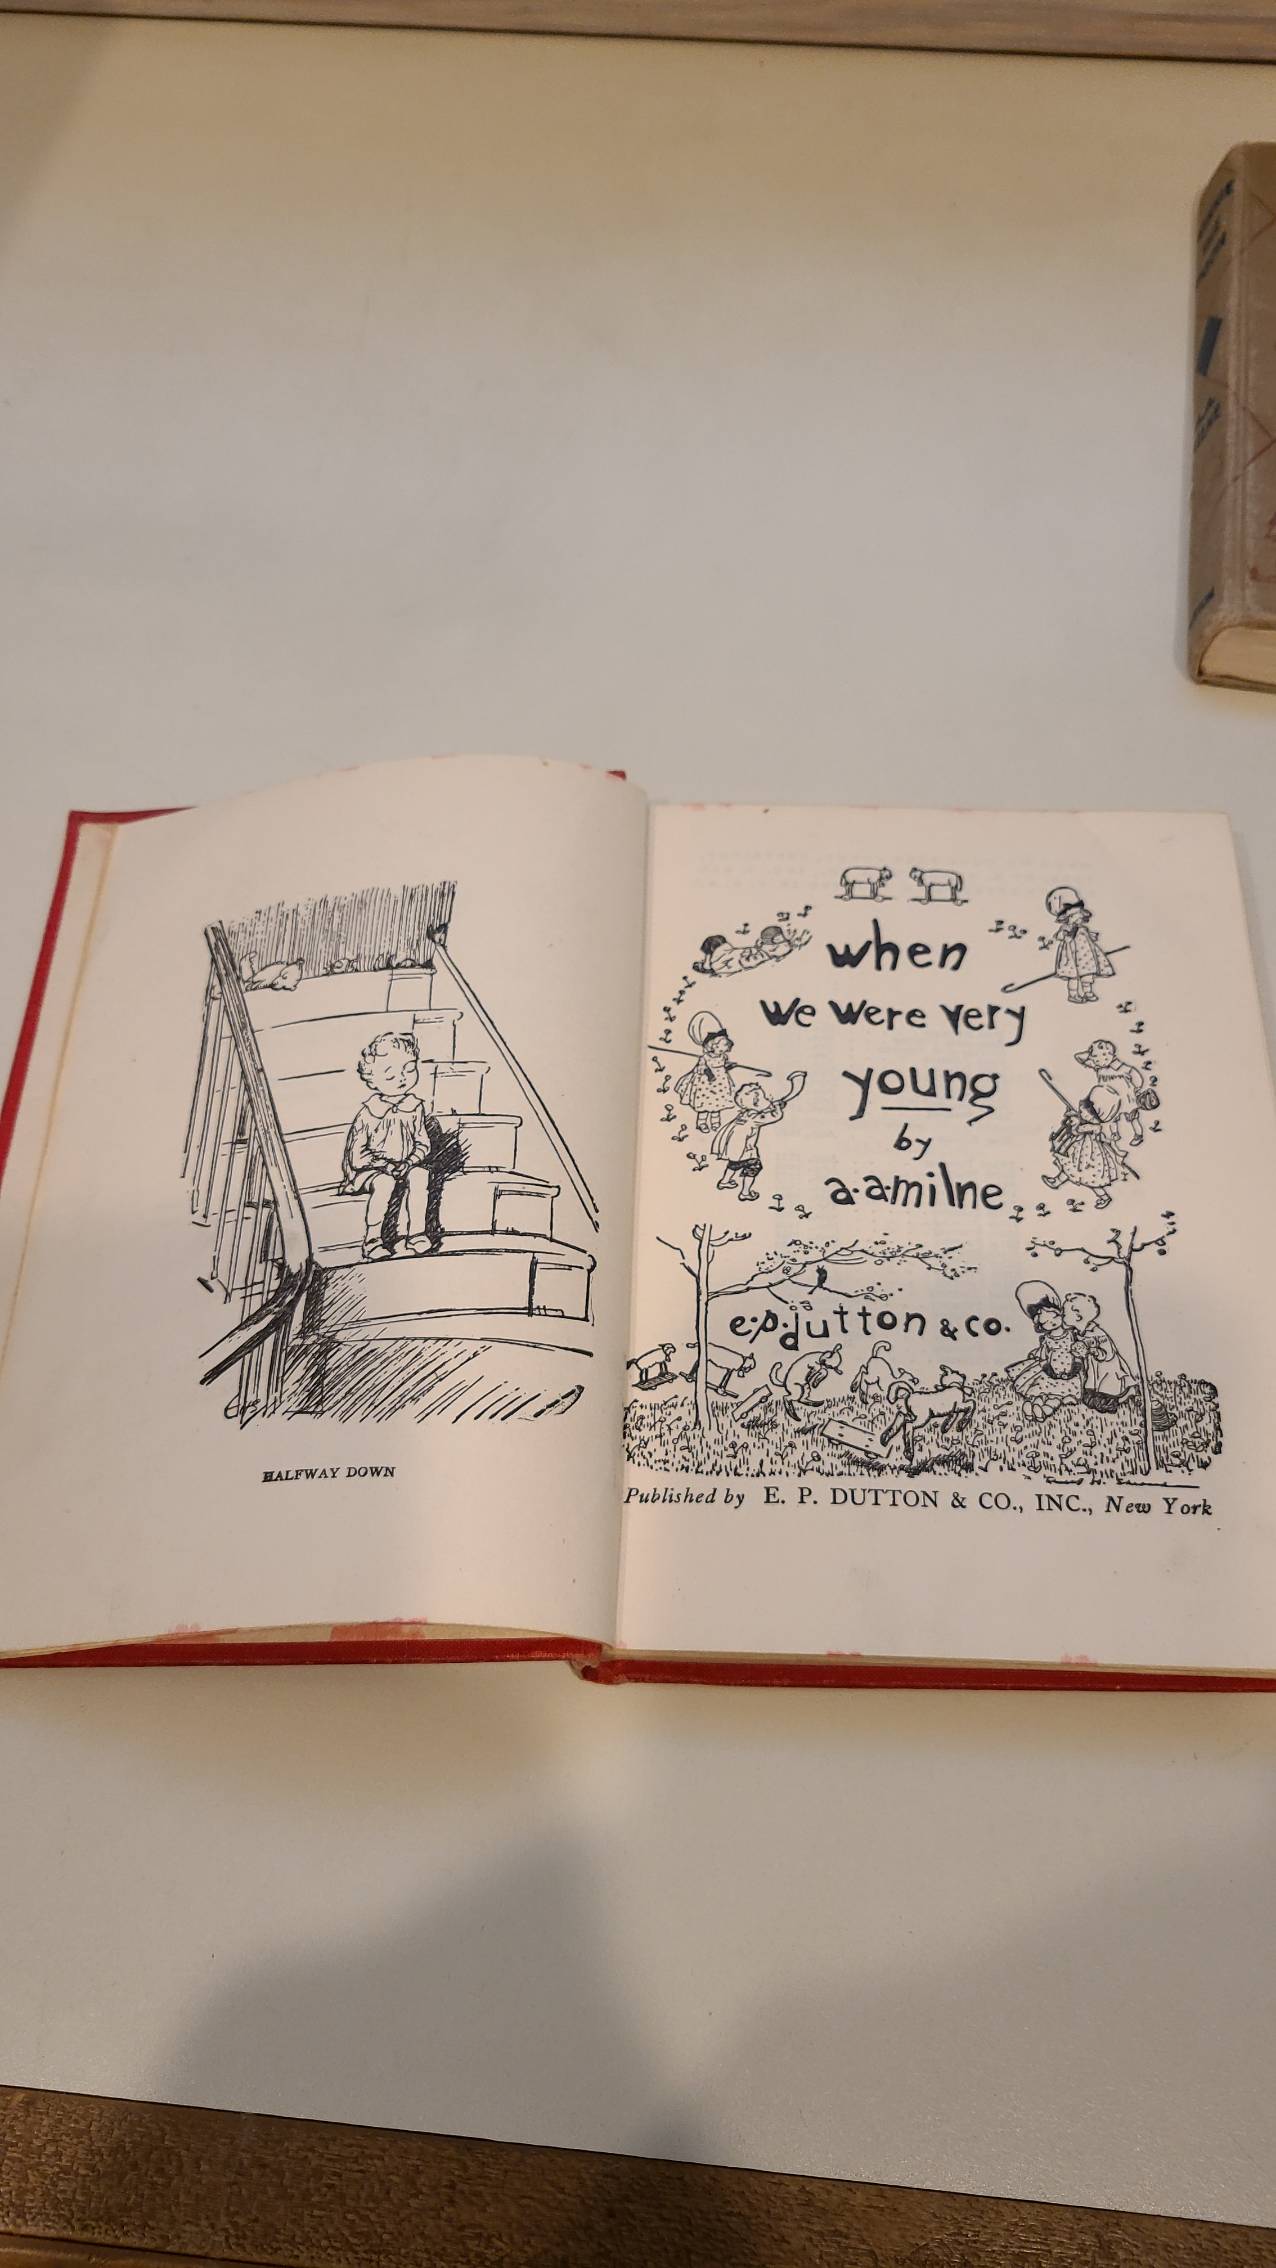 HALFWAY DOWN
when
we were very
young
by
a.a.milne
e.p.dutton & co.
Published by E. P. DUTTON & CO., INC., New York